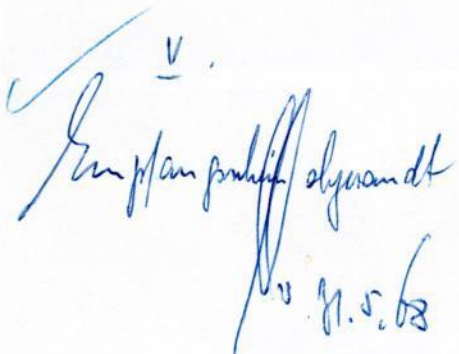 V.
Empfangsschein abgesandt
31.5.68